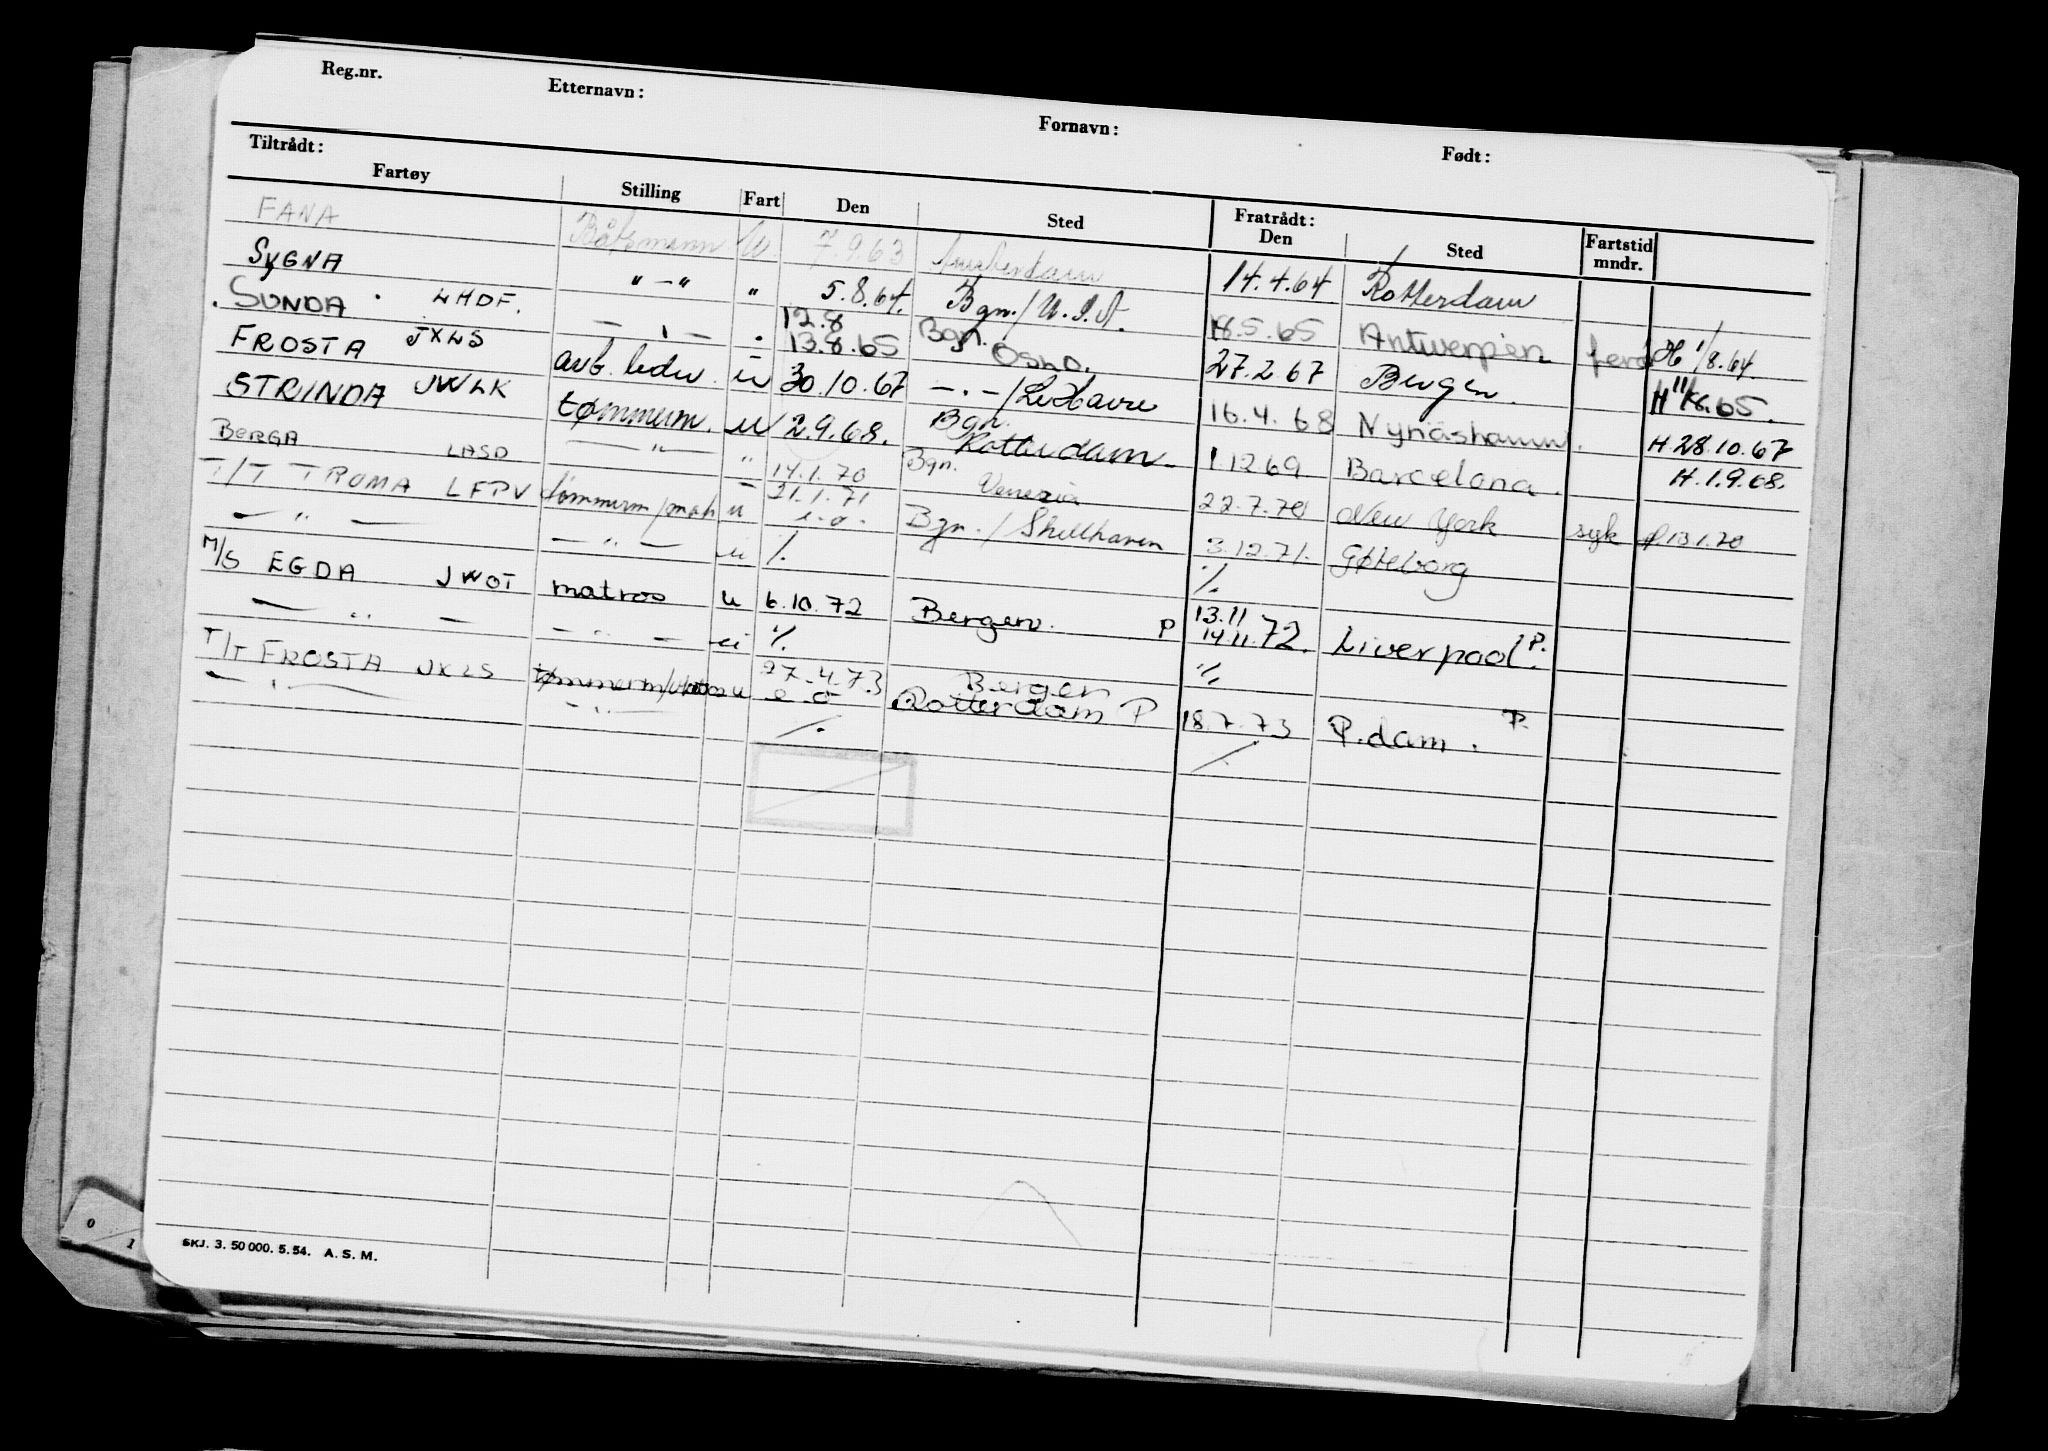 Reg.nr. Etternavn: Fornavn: Født:
Tiltrådt: Fratrådt:
Fartøy Stilling Fart Den Sted Den Sted Fartstid mndr.
FANA Båtsmann U. 7.9.63 Amsterdam 14.4.64 Rotterdam
SYGNA "-" " 5.8.64. Bgn./U.S.A. 18.5.65 Antwerpen H 1/8.64.
SUNDA . LHDF. - " - " 12.8 13.8.65 Bgn. Oslo. 27.2.67 Bergen. H 11/8.65.
FROSTA JXLS avb. leder u 30.10.67 - . - /Le Havre 16.4.68 Nynäshamn. H 28.10.67
STRINDA JWLK tømmerm. u 2.9.68. Bgn. Rotterdam. 1.12.69 Barcelona. H.1.9.68.
BERGA LASD — " — " 14.1.70 Bgn. Venezia 22.7.70 New York syk 13.1.70
T/T TROMA LFPV tømmerm/matr u 21.1.71 e.o. Bgn./Shellhaven 3.12.71. Gøteborg
— " — — " — u %. %.
M/S EGDA JWOT matros u 6.10.72 Bergen. P 13.11 14.11.72. Liverpool P.
— " — — " — u %. %
T/T FROSTA JXLS tømmerm/matros u 27.4.73 e.o Bergen Rotterdam P 18.7.73 R.dam. P.
— " — — " — %. %
SKJ. 3. 50 000. 5. 54. A. S. M.
0
1